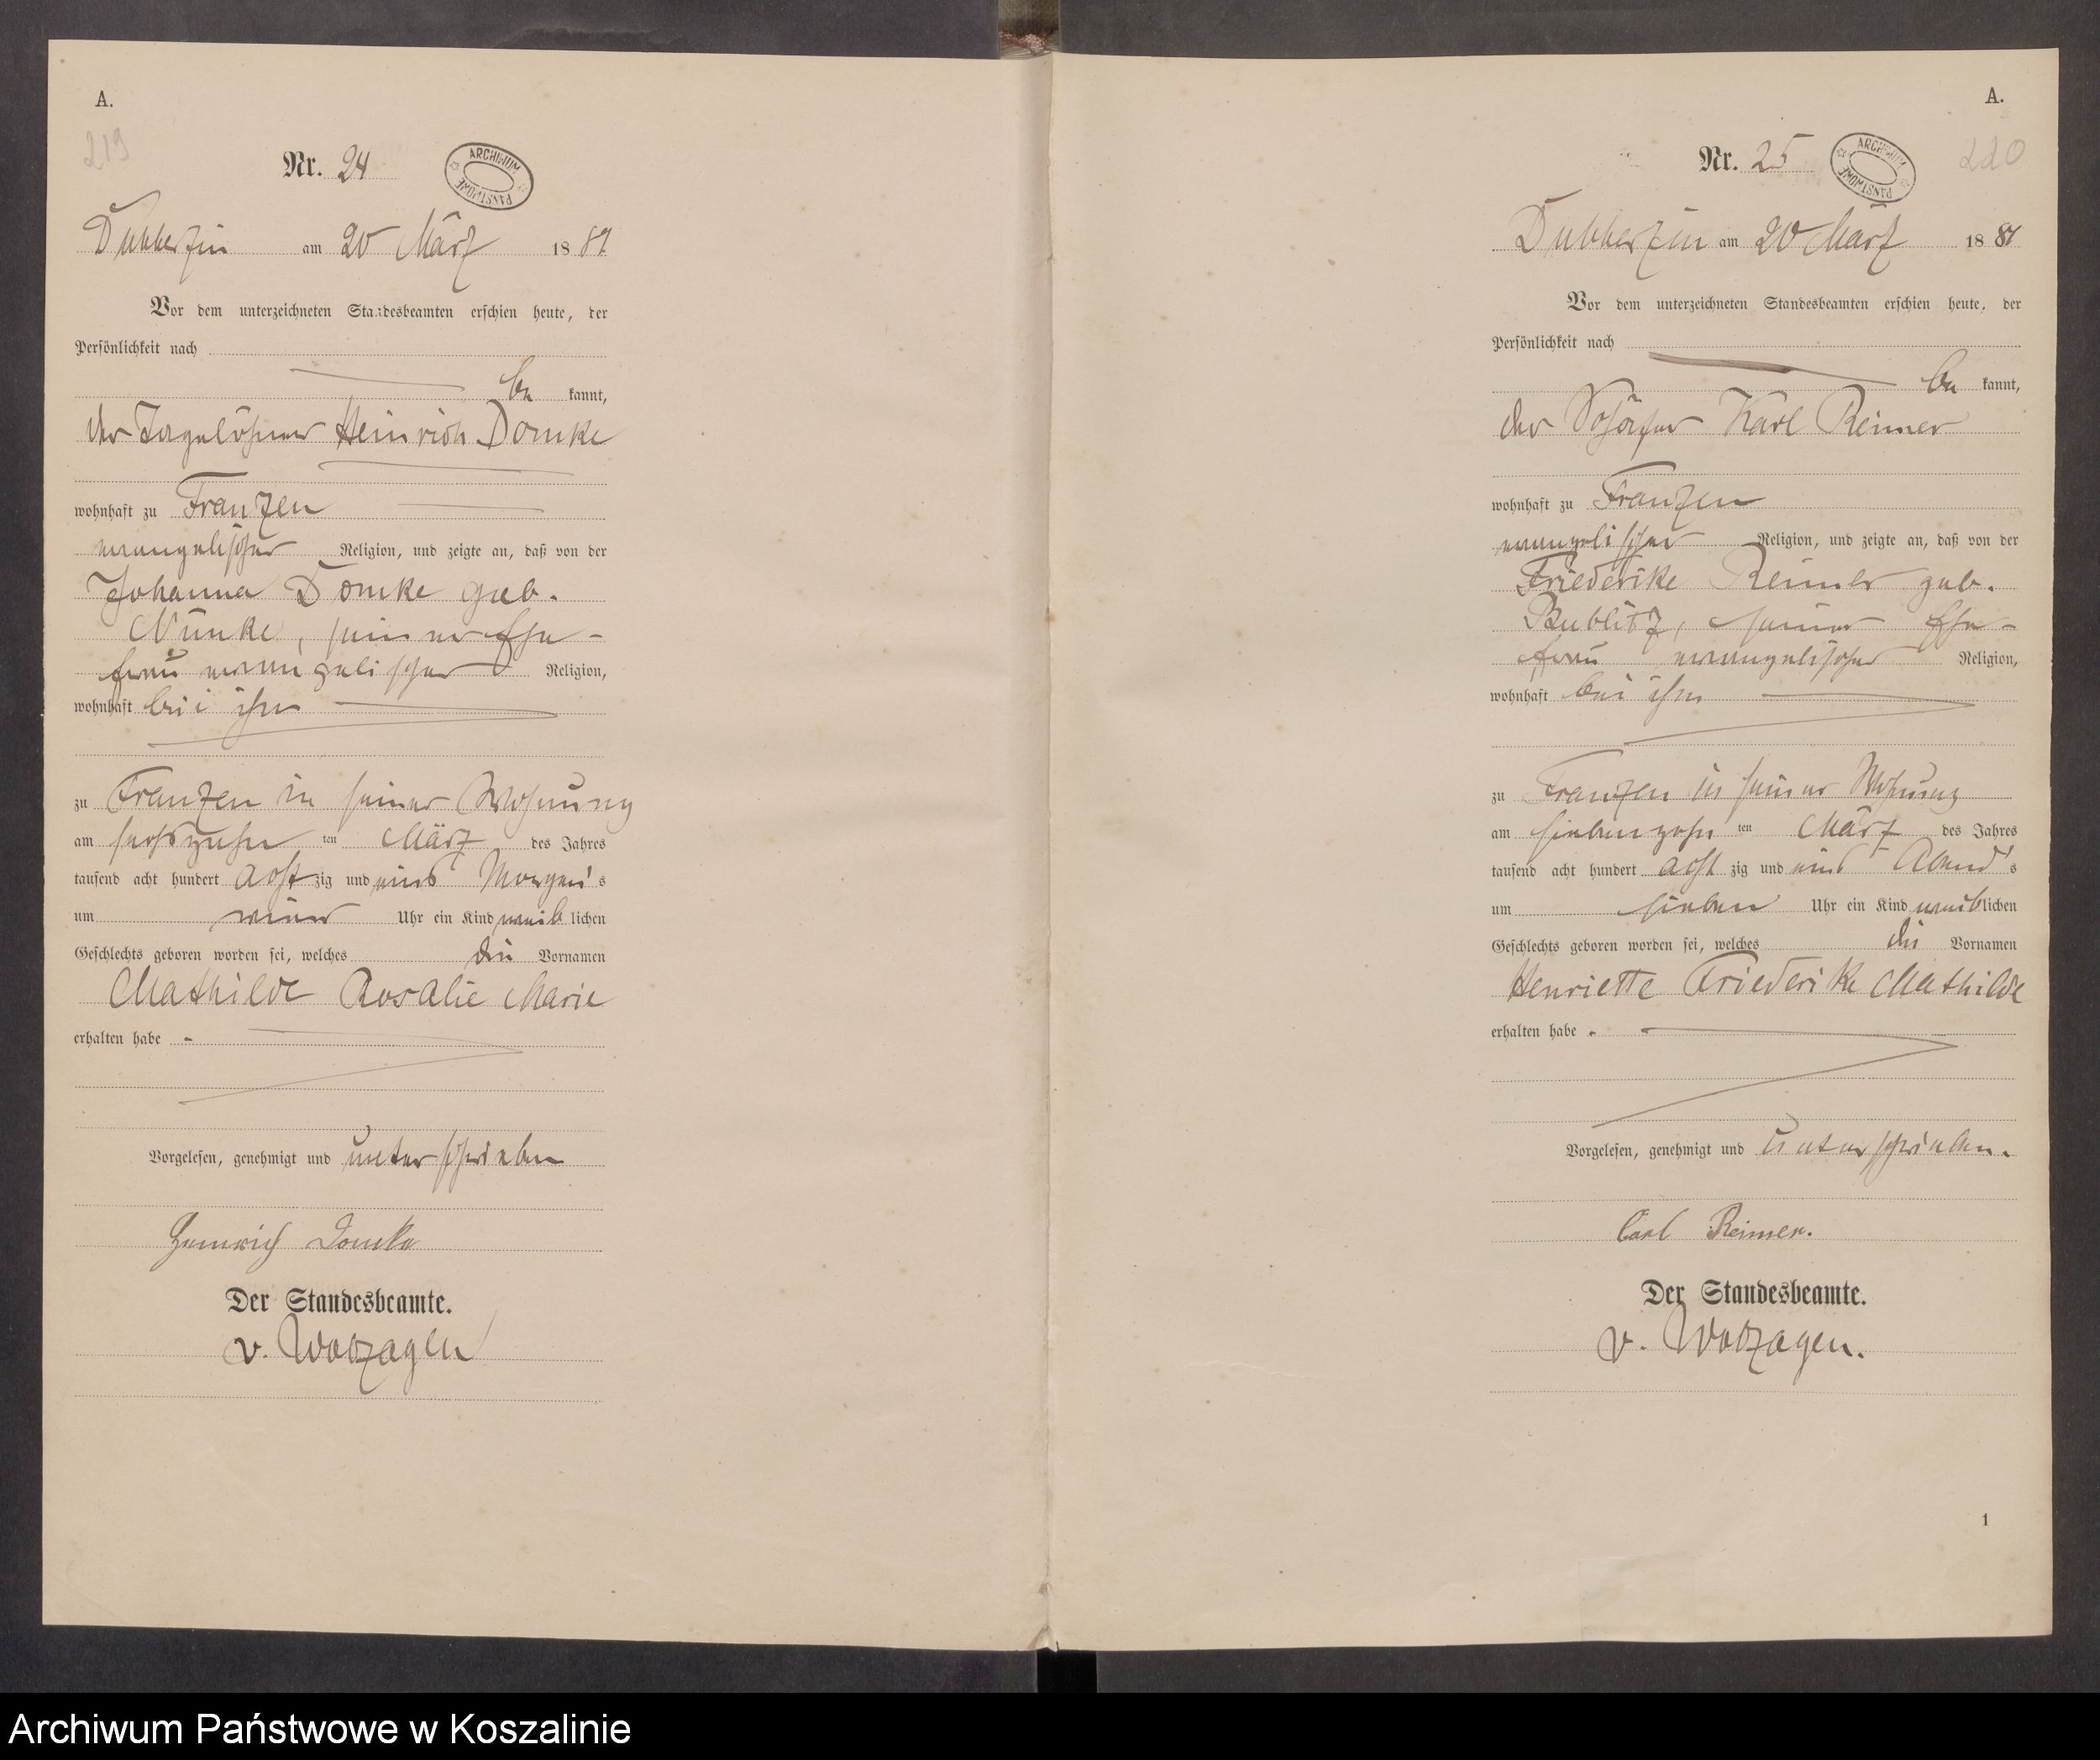 A.
219
Nr. 24
ARCHIWUM PAŃSTWOWE
Dubberzin am 20 März 1881
Vor dem unterzeichneten Standesbeamten erschien heute, der
Persönlichkeit nach
be kannt,
der Tagelöhner Heinrich Domke
wohnhaft zu Franzen
evangelischer Religion, und zeigte an, daß von der
Johanna Domke geb.
Nünke, seiner Ehe-
frau evangelischer Religion,
wohnhaft bei ihm
zu Franzen in seiner Wohnung
am sechszehn ten März des Jahres
tausend acht hundert acht zig und eins Morgen's
um vier Uhr ein Kind weib lichen
Geschlechts geboren worden sei, welches die Vornamen
Mathilde Rosalie Marie
erhalten habe .
Vorgelesen, genehmigt und unterschrieben
Heinrich Domke
Der Standesbeamte.
A.
220
Nr. 25
ARCHIWUM PAŃSTWOWE
Dubberzin am 20 März 1881
Vor dem unterzeichneten Standesbeamten erschien heute, der
Persönlichkeit nach
be kannt,
der Schäfer Karl Reimer
wohnhaft zu Franzen
evangelischer Religion, und zeigte an, daß von der
Friederike Reimer geb.
Bublitz, seiner Ehe-
frau evangelischer Religion,
wohnhaft bei ihm
zu Franzen in seiner Wohnung
am siebenzehn ten März des Jahres
tausend acht hundert acht zig und eins Abend's
um sieben Uhr ein Kind weiblichen
Geschlechts geboren worden sei, welches die Vornamen
Henriette Friederike Mathilde
erhalten habe .
Vorgelesen, genehmigt und unterschrieben.
Carl Reimer.
Der Standesbeamte.
1
Archiwum Państwowe w Koszalinie